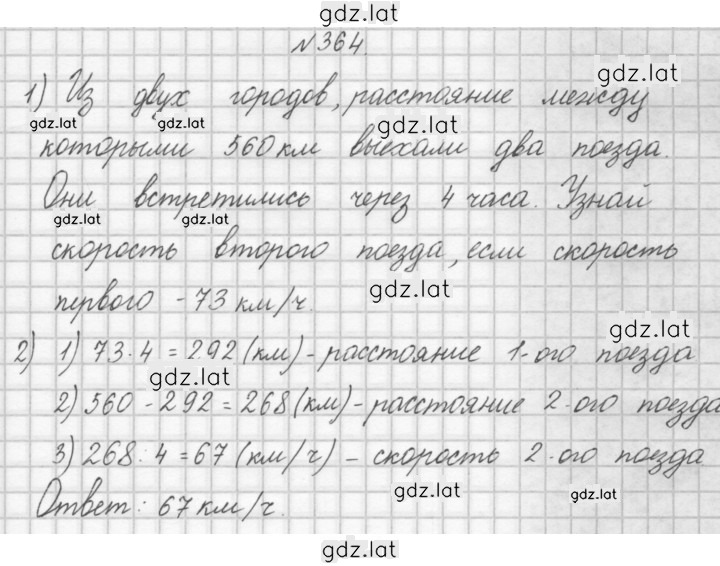 gdz.lat
№364.
gdz.lat
1) Из двух городов, расстояние между
gdz.lat gdz.lat gdz.lat
которыми 560 км выехали два поезда.
Они встретились через 4 часа. Узнай
gdz.lat gdz.lat
скорость второго поезда, если скорость
gdz.lat
первого - 73 км/ч.
gdz.lat
2) 1) 73·4=292(км)-расстояние 1-ого поезда
gdz.lat
2) 560-292=268(км)-расстояние 2-ого поезда
3) 268:4=67(км/ч)-скорость 2-ого поезда
gdz.lat gdz.lat
Ответ: 67 км/ч.
gdz.lat